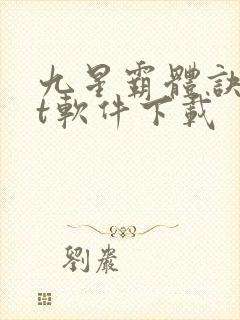 九星霸體訣
t軟件下載
劉巖